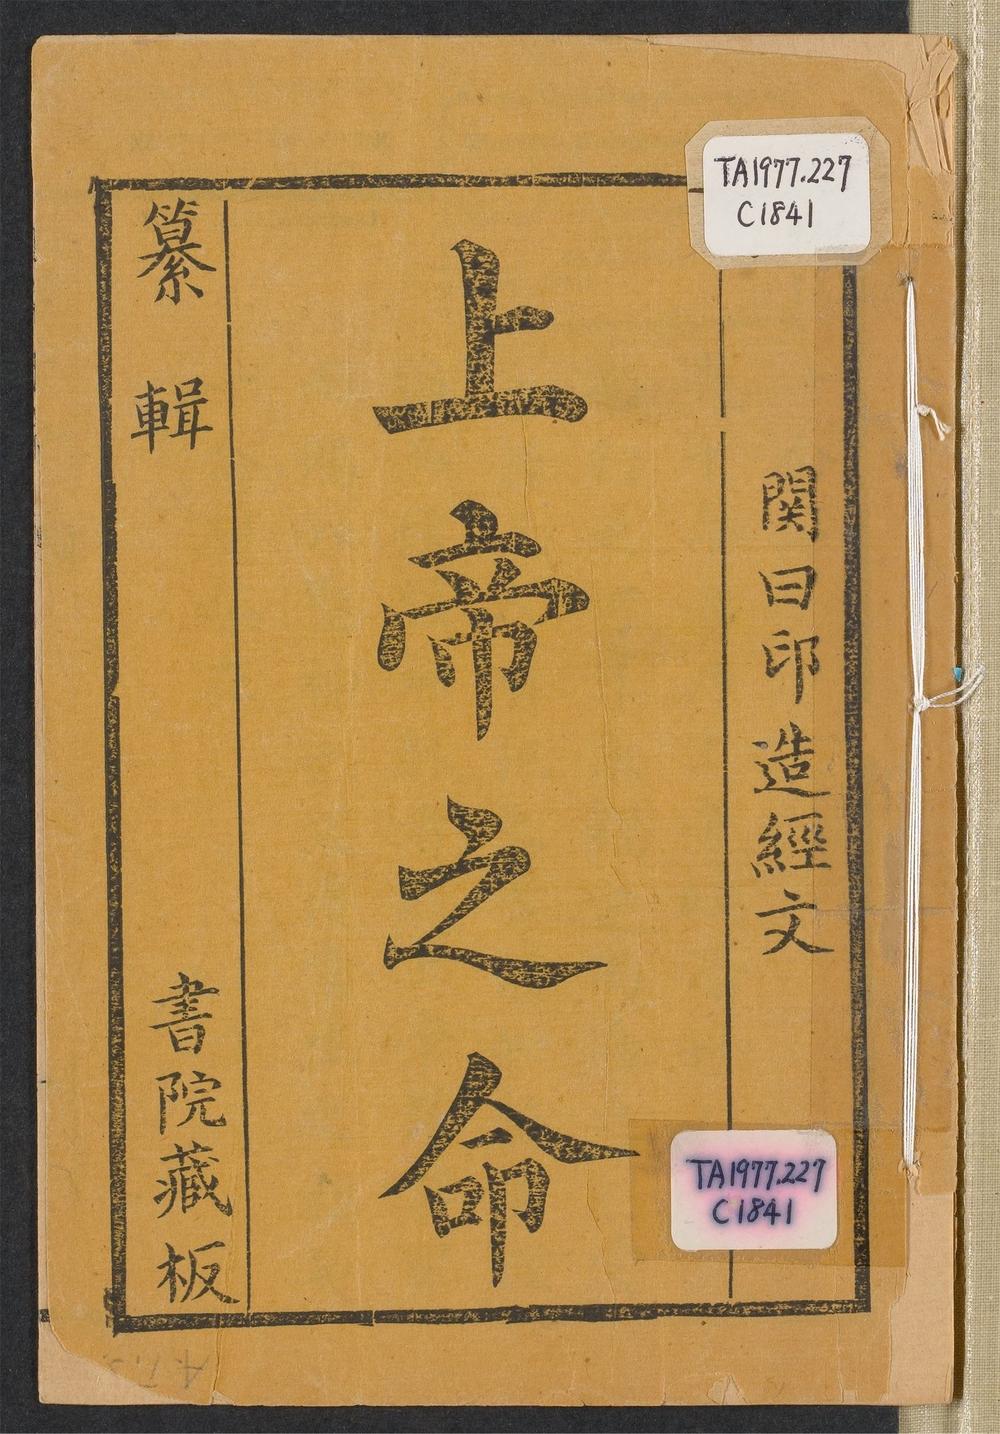 関日印造經文
上帝之命
纂輯
書院藏板
TA1977.227
C1841
TA1977.227
C1841